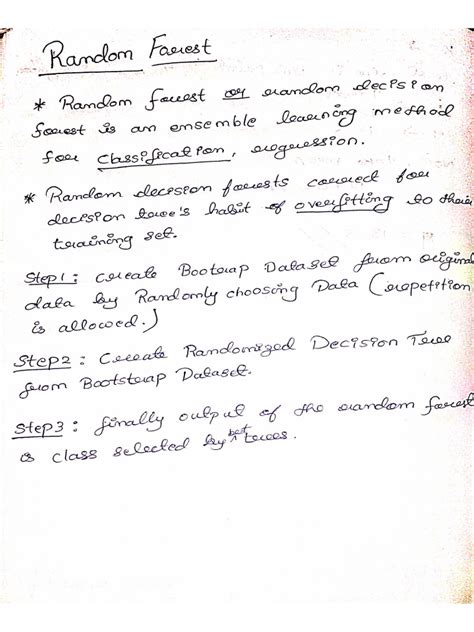 Random Forest
* Random forest or random decision
forest is an ensemble learning method
for classification, regression.
* Random decision forests correct for
decision tree's habit of overfitting to their
training set.
Step1 : create Bootsrap Dataset from original
data by Randomly choosing Data (repetition
is allowed.)
Step2 : Create Randomized Decision Tree
from Bootstrap Dataset.
Step3 : finally output of the random forest
is class selected by best trees.